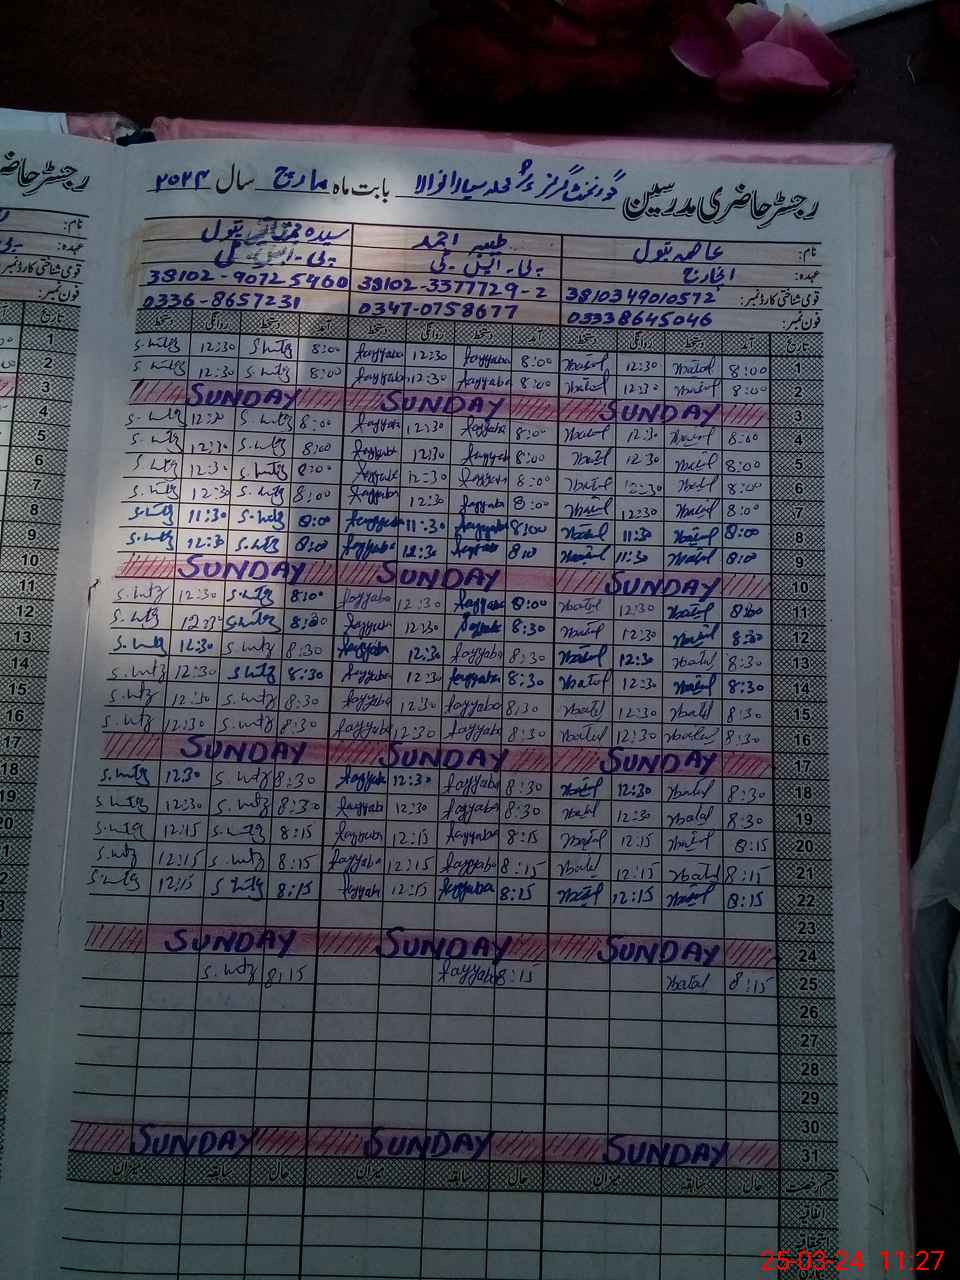 رجسٹر حاضری مدرسین گورنمنٹ گرلز بابت ماہ مارچ سال ۲۰۲۴
نام: عاصمہ بتول طیبہ احمد سیدہ بتول
عہدہ: انچارج پی۔ایس۔ٹی پی۔ایس۔ٹی
قومی شناختی کارڈ نمبر: 3810349010572 38102-3377729-2 38102-9072546
فون نمبر: 03338645046 0347-0758677 0336-8657231
تاریخ آمد دستخط روانگی دستخط آمد دستخط روانگی دستخط آمد دستخط روانگی دستخط
1 8:00 Batol 12:30 Batol 8:00 Tayyaba 12:30 Tayyaba 8:00 S.mtz 12:30 S.mtz
2 8:00 Batol 12:30 Batol 8:00 Tayyaba 12:30 Tayyaba 8:00 S.mtz 12:30 S.mtz
3 SUNDAY SUNDAY SUNDAY
4 8:00 Batol 12:30 Batol 8:00 Tayyaba 12:30 Tayyaba 8:00 S.mtz 12:30 S.mtz
5 8:00 Batol 12:30 Batol 8:00 Tayyaba 12:30 Tayyaba 8:00 S.mtz 12:30 S.mtz
6 8:00 Batol 12:30 Batol 8:00 Tayyaba 12:30 Tayyaba 8:00 S.mtz 12:30 S.mtz
7 8:00 Batol 12:30 Batol 8:00 Tayyaba 12:30 Tayyaba 8:00 S.mtz 12:30 S.mtz
8 8:00 Batol 11:30 Batol 8:00 Tayyaba 11:30 Tayyaba 8:00 S.mtz 11:30 S.mtz
9 8:00 Batol 11:30 Batol 8:0 Tayyaba 12:30 Tayyaba 8:00 S.mtz 12:30 S.mtz
10 SUNDAY SUNDAY SUNDAY
11 8:00 Batol 12:30 Batol 8:00 Tayyaba 12:30 Tayyaba 8:00 S.mtz 12:30 S.mtz
12 8:30 Batol 12:30 Batol 8:30 Tayyaba 12:30 Tayyaba 8:30 S.mtz S.mtz
13 8:30 Batol 12:30 Batol 8:30 Tayyaba 12:30 Tayyaba 8:30 S.mtz 12:30 S.mtz
14 8:30 Batol 12:30 Batol 8:30 Tayyaba 12:30 Tayyaba 8:30 S.mtz 12:30 S.mtz
15 8:30 Batol 12:30 Batol 8:30 Tayyaba 12:30 Tayyaba 8:30 S.mtz 12:30 S.mtz
16 8:30 Batol 12:30 Batol 8:30 Tayyaba 12:30 Tayyaba 8:30 S.mtz 12:30 S.mtz
17 SUNDAY SUNDAY SUNDAY
18 8:30 Batol 12:30 Batol 8:30 Tayyaba 12:30 Tayyaba 8:30 S.mtz 12:30 S.mtz
19 8:30 Batol 12:30 Batol 8:30 Tayyaba 12:30 Tayyaba 8:30 S.mtz 12:30 S.mtz
20 8:15 Batol 12:15 Batol 8:15 Tayyaba 12:15 Tayyaba 8:15 S.mtz 12:15 S.mtz
21 8:15 Batol 12:15 Batol 8:15 Tayyaba 12:15 Tayyaba 8:15 S.mtz 12:15 S.mtz
22 8:15 Batol 12:15 Batol 8:15 Tayyaba 12:15 Tayyaba 8:15 S.mtz 12:15 S.mtz
23
24 SUNDAY SUNDAY SUNDAY
25 8:15 Batol 8:15 Tayyaba 8:15 S.mtz
26
27
28
29
30
31 SUNDAY SUNDAY SUNDAY
قسم رخصت حال سابقہ میزان حال سابقہ میزان حال سابقہ میزان
اتفاقیہ
25-03-24 11:27